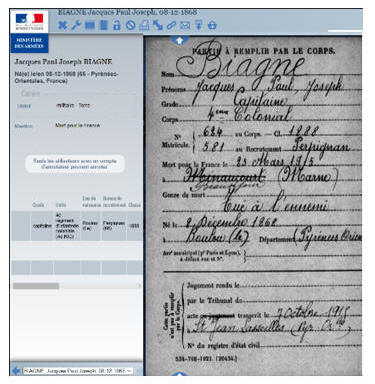 BIAGNE Jacques Paul Joseph, 08-12-1868
MINISTÈRE
DES ARMÉES
Jacques Paul Joseph BIAGNE
Né(e) le/en 08-12-1868 (66 - Pyrénées-
Orientales, France)
Carrière
Statut militaire - Terre
Mention Mort pour la France
Seuls les utilisateurs avec un compte
d'annotateur peuvent annoter.
Grade Unité Lieu de naissance Bureau de recrutement Classe
capitaine 4e régiment d'infanterie coloniale (4e RIC) Boulou (Le) Perpignan (66) 1888
BIAGNE, Jacques Paul Joseph, 08-12-1868
PARTIE À REMPLIR PAR LE CORPS.
Nom Biagne
Prénoms Jacques Paul, Joseph
Grade Capitaine
Corps 4ème Colonial
N° 634 au Corps. — Cl. 1888
Matricule. 581 au Recrutement Perpignan
Mort pour la France le 23 Mars 1915
à Minaucourt (Marne)
Genre de mort Tué à l'ennemi
Né le 8 Décembre 1868
à Boulou (Le) Département Pyrénées Orien
Arr¹ municipal (pʳ Paris et Lyon),
à défaut rue et N°.
Cette partie
n'est pas à remplir
par le Corps.
Jugement rendu le
par le Tribunal de
acte ou jugement transcrit le 7 octobre 1915
à St Jean Lasseilles (Pyr. Or.)
N° du registre d'état civil
534-708-1921. [26434.]